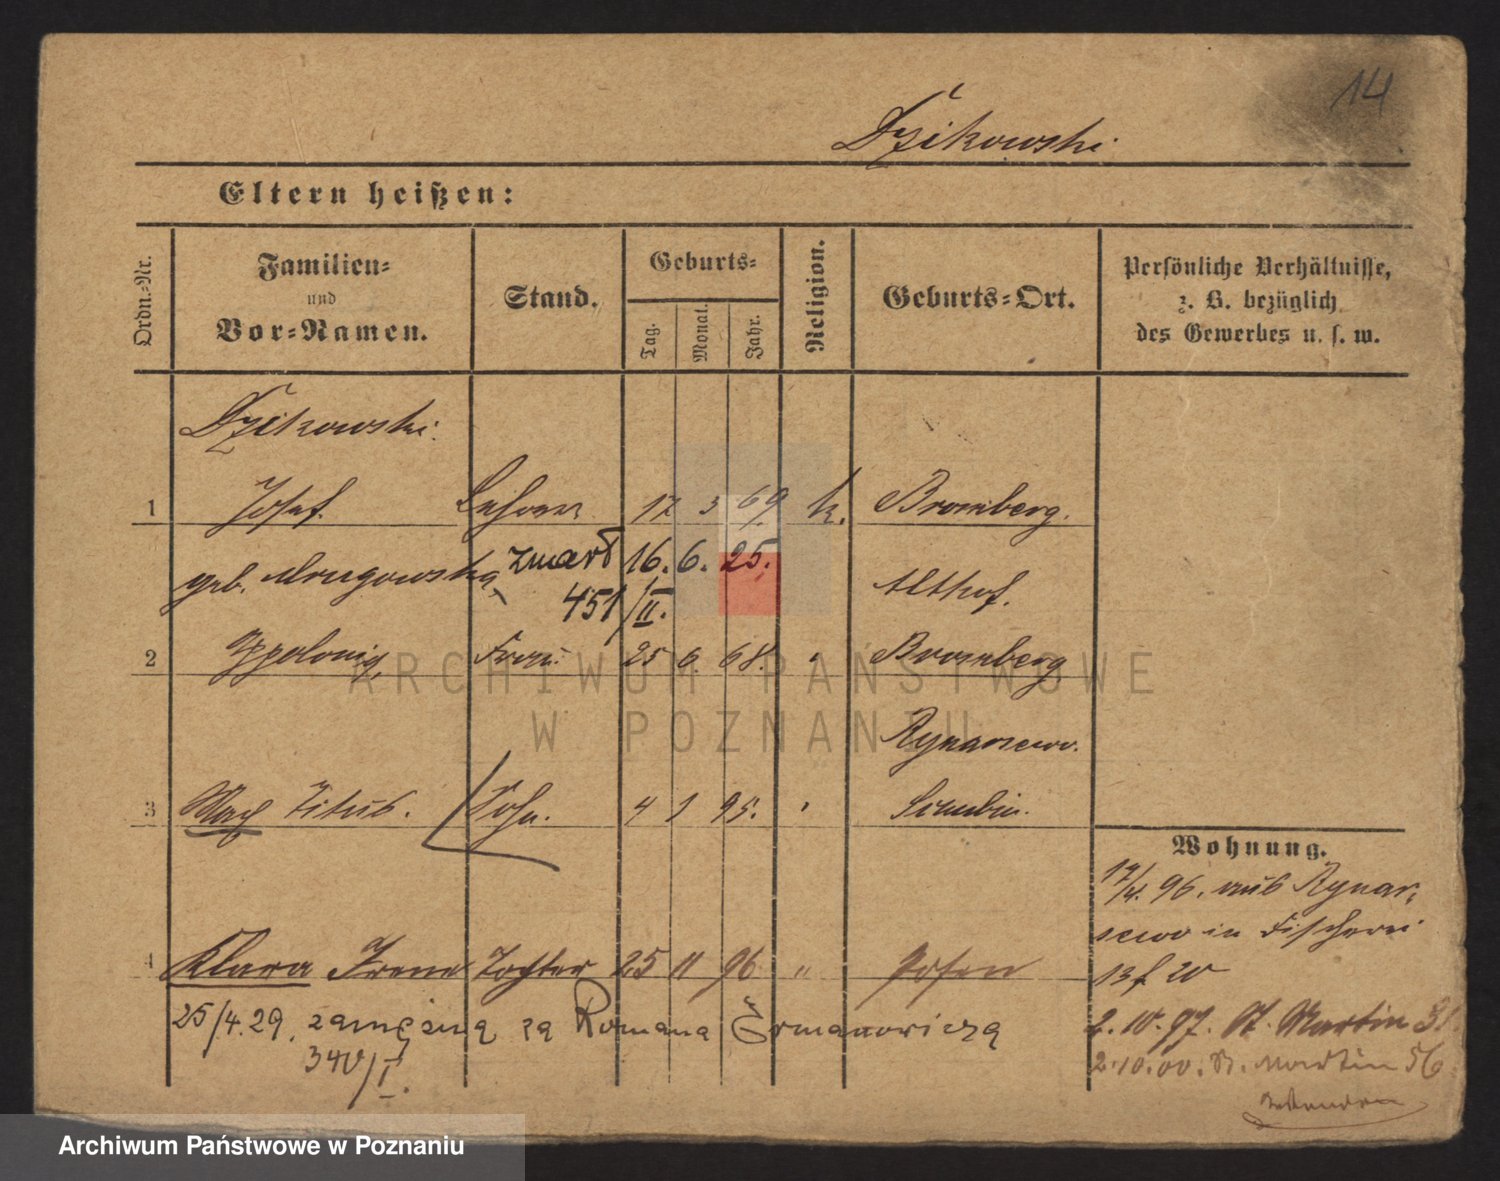 14
Dzikowski
Eltern heißen:
Ordn.-Nr.
Familien-
und
Vor-Namen.
Stand.
Geburts-
Tag.
Monat.
Jahr.
Religion.
Geburts-Ort.
Persönliche Verhältnisse,
z. B. bezüglich
des Gewerbes u. s. w.
Dzikowski.
1 Josef. 17 3 69. k. Bromberg.
geb. zmarł 16. 6. 25. Althof.
451/II.
2 Appolonia, Frau. 25 6. 68. " Bromberg
Rynarzewo.
3 Max Titus. Sohn. 4 1 95. " Schubin.
Wohnung.
17/4. 96. aus Rynar-
zewo in Fischerei
4 Klara Irene Tochter 25 11 96 " Posen
13 b. W
25/4.29. zamężna za Romana Ermanowicza
340/I.
2.10.97. St. Martin 31.
2.10.00. St. Martin 56
ARCHIWUM PAŃSTWOWE
W POZNANIU
Archiwum Państwowe w Poznaniu